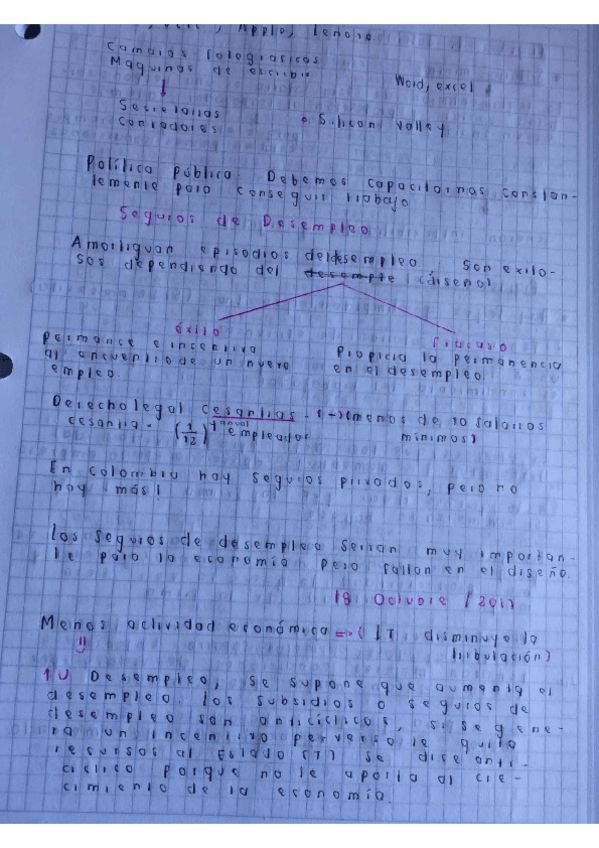 , Apple, lenovo.
Cambios tologiasicos
Maquinas de escribir
Word, excel
↓
Secretarias
contadores
• Silicon valley
Política pública: Debemos capacitarnos constan-
temente para conseguir trabajo
Seguros de Desempleo
Amortiguan episodios del desempleo. Son exito-
sos dependiendo del desempte (diseño)
éxito
fracaso
Permance e incentiva
al encuentro de un nuevo
empleo.
Propicia la permanencia
en el desempleo.
Derecho legal cesantias - s - (menos de 10 salarios
cesantia = (1/12) anual empleador
minimos)
En colombia hay seguros privados, pero no
hay más!
los seguros de desempleo serian muy importan-
te para la economía pero fallan en el diseño.
18 Octubre / 2017
Menos actividad económica => (↓T, disminuye la
tributación)
↑U Desempleo, se supone que aumenta el
desempleo. los subsidios o seguros de
desempleo son anticíclicos, si se gene-
ra un incentivo perverso le quita
recursos al Estado (T) se dise anti-
ciclico porque no le aporta al cre-
cimiento de la economía.